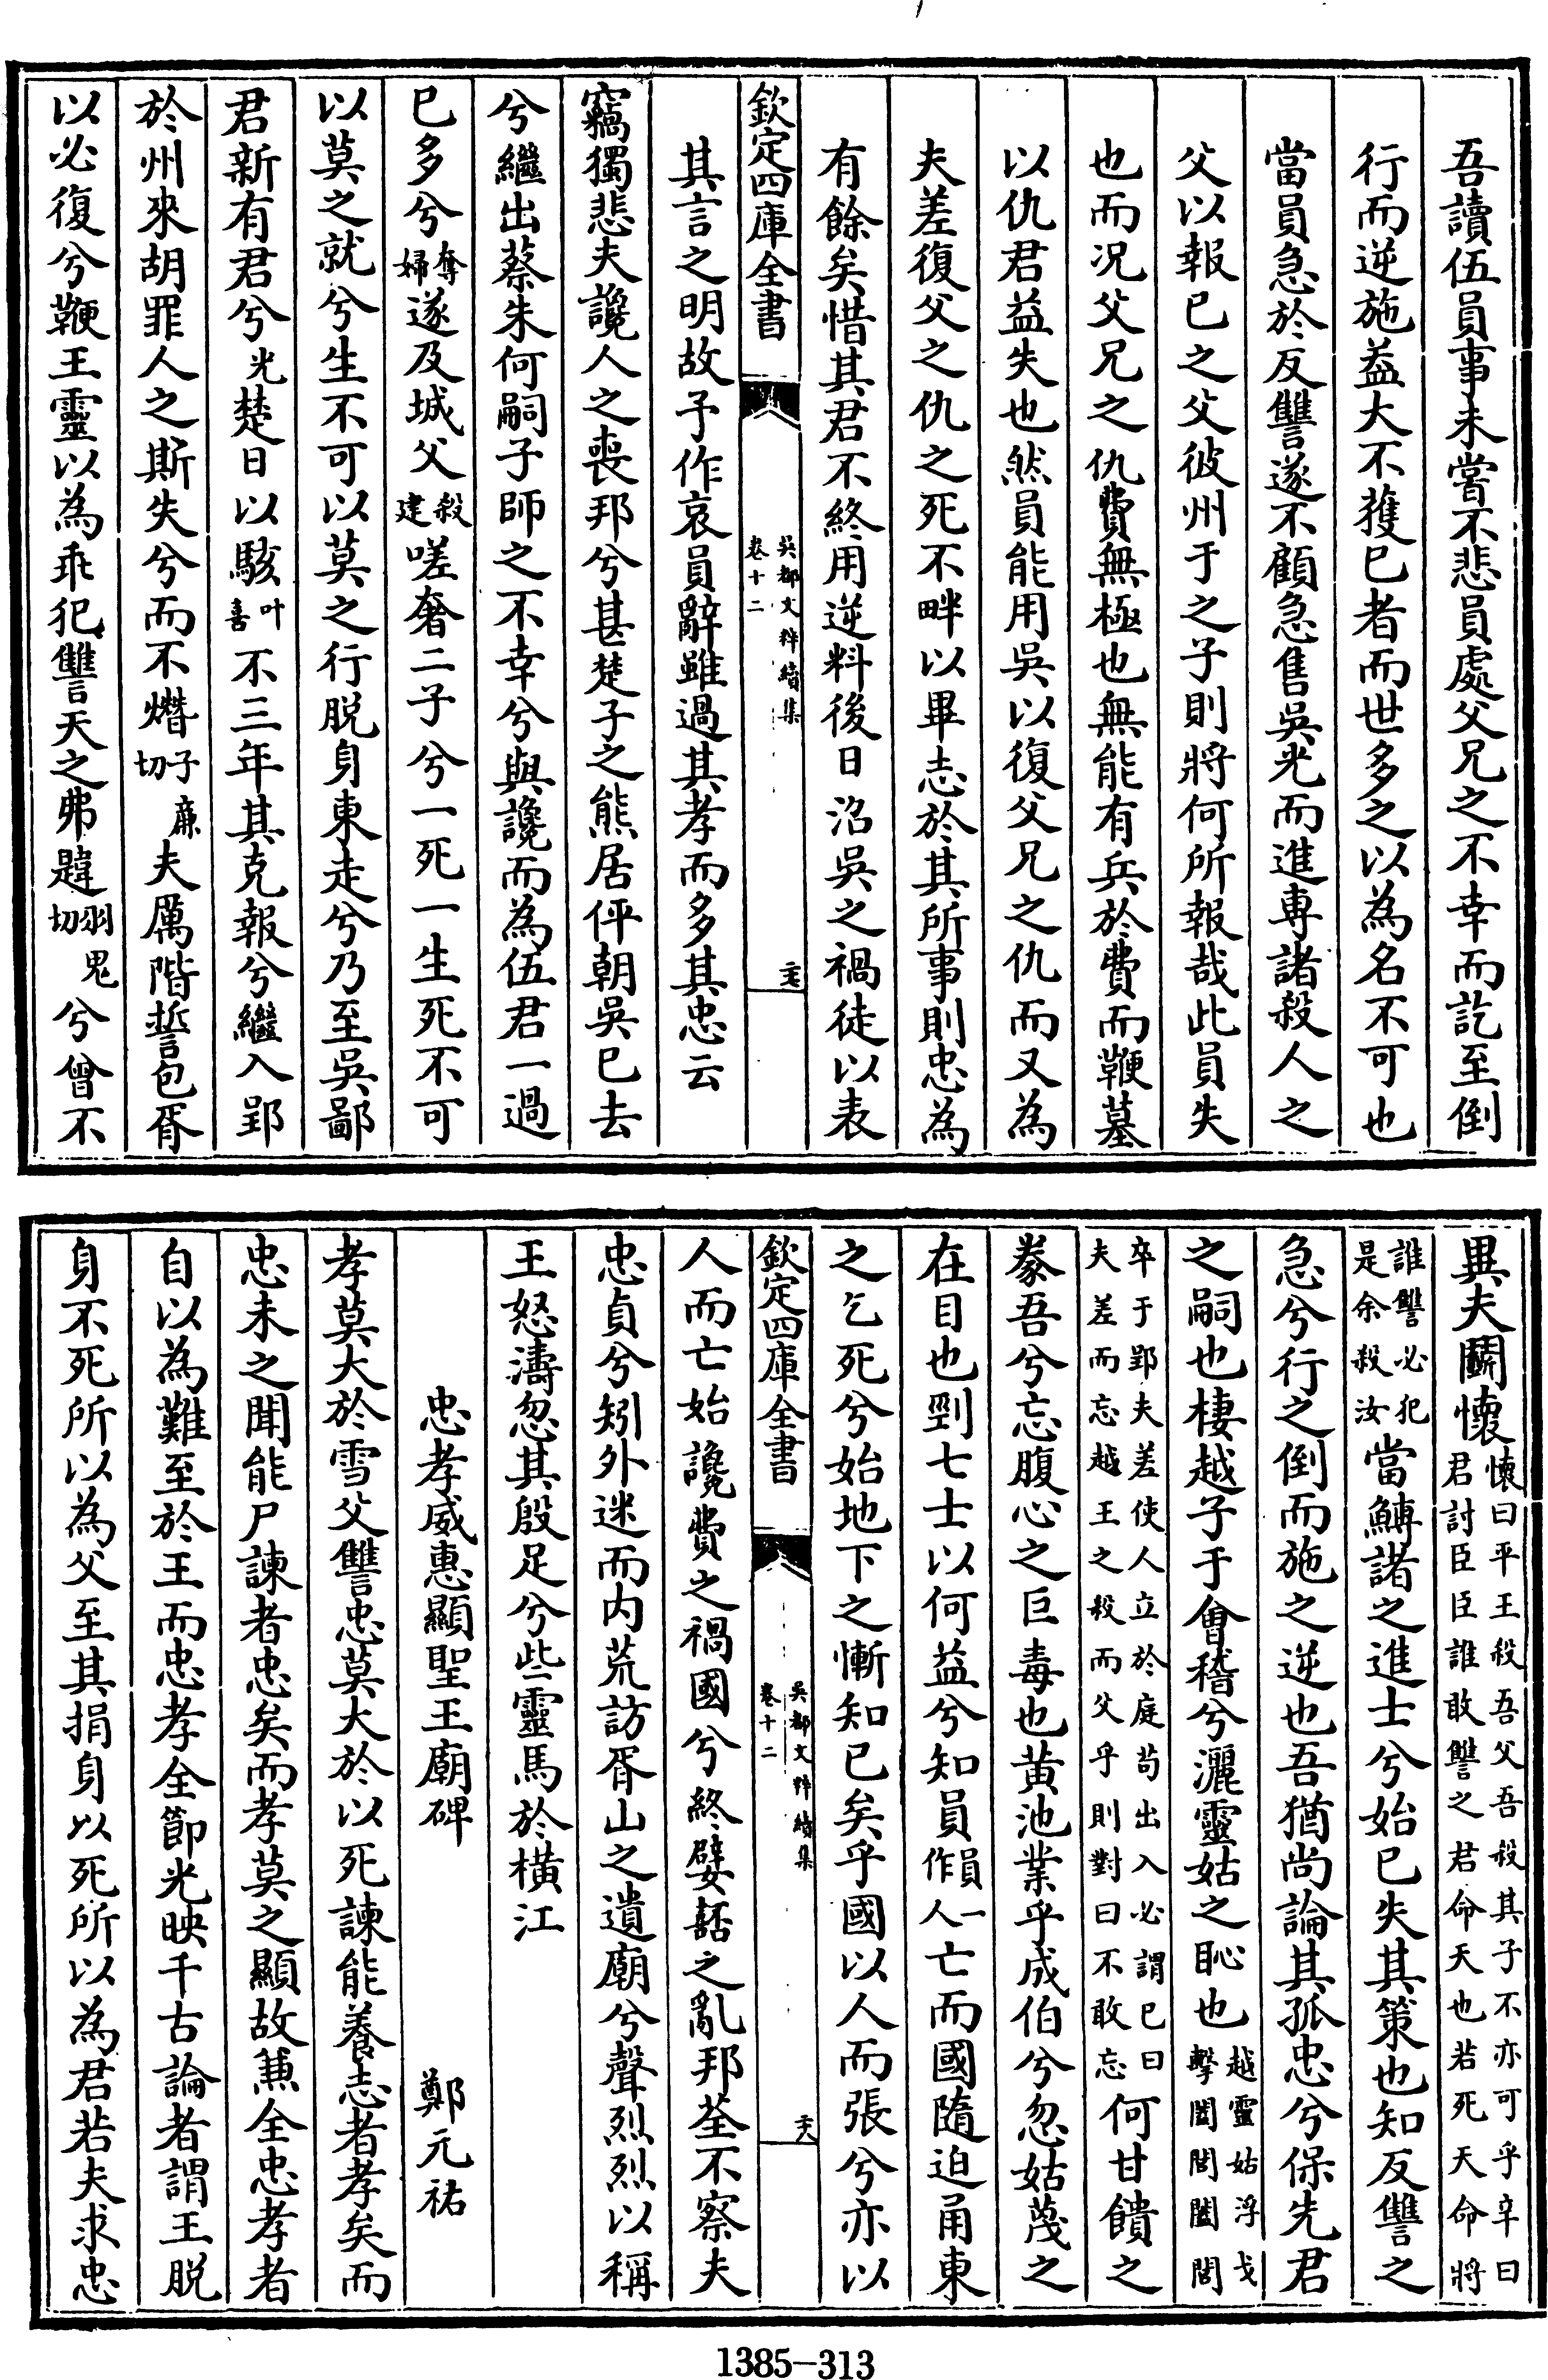 吾讀伍員事未嘗不悲員處父兄之不幸而訖至倒
行而逆施益大不獲已者而世多之以為名不可也
當員急於反讐遂不顧急售吳光而進專諸殺人之
父以報已之父彼州于之子則將何所報哉此員失
也而况父兄之仇費無極也無能有兵於費而鞭墓
以仇君益失也然員能用吳以復父兄之仇而又為
夫差復父之仇之死不畔以畢志於其所事則忠為
有餘矣惜其君不終用逆料後日沼吳之禍徒以表
欽定四庫全書
吳都文粹續集
卷十二
其言之明故予作哀員辭雖過其孝而多其忠云
竊獨悲夫讒人之喪邦兮甚楚子之熊居伻朝吳已去
兮繼出蔡朱何嗣子師之不幸兮與讒而為伍君一過
已多兮奪婦遂及城父殺建嗟奢二子兮一死一生死不可
以莫之就兮生不可以莫之行脱身東走兮乃至吳鄙
君新有君兮光楚日以駭叶喜不三年其克報兮繼入郢
於州來胡罪人之斯失兮而不熸子廉切夫厲階誓包胥
以必復兮鞭王靈以為乖犯讐天之弗韙羽鬼切兮曾不
異夫鬭懷懷曰平王殺吾父吾殺其子不亦可乎辛曰
君討臣臣誰敢讐之君命天也若死天命將
誰讐必犯
是余殺汝當鱄諸之進士兮始已失其策也知反讐之
急兮行之倒而施之逆也吾猶尚論其孤忠兮保先君
之嗣也棲越子于會稽兮灑靈姑之恥也越靈姑浮戈
擊闔閭闔閭
卒于郢夫差使人立於庭茍出入必謂已曰
夫差而忘越王之殺而父乎則對曰不敢忘何甘饋之
豢吾兮忘腹心之巨毒也黄池業乎成伯兮忽姑蔑之
在目也剄七士以何益兮知員員一作人亡而國隨迫甬東
之乞死兮始地下之慚知已矣乎國以人而張兮亦以
欽定四庫全書
吳都文粹續集
卷十二
人而亡始讒費之禍國兮終嬖嚭之亂邦荃不察夫
忠貞兮矧外迷而内荒訪胥山之遺廟兮聲烈烈以稱
王怒濤忽其殷足兮些靈馬於橫江
忠孝威惠顯聖王廟碑　鄭元祐
孝莫大於雪父讐忠莫大於以死諫能養志者孝矣而
忠未之聞能尸諫者忠矣而孝莫之顯故兼全忠孝者
自以為難至於王而忠孝全節光映千古論者謂王脱
身不死所以為父至其捐身以死所以為君若夫求忠
1385-313